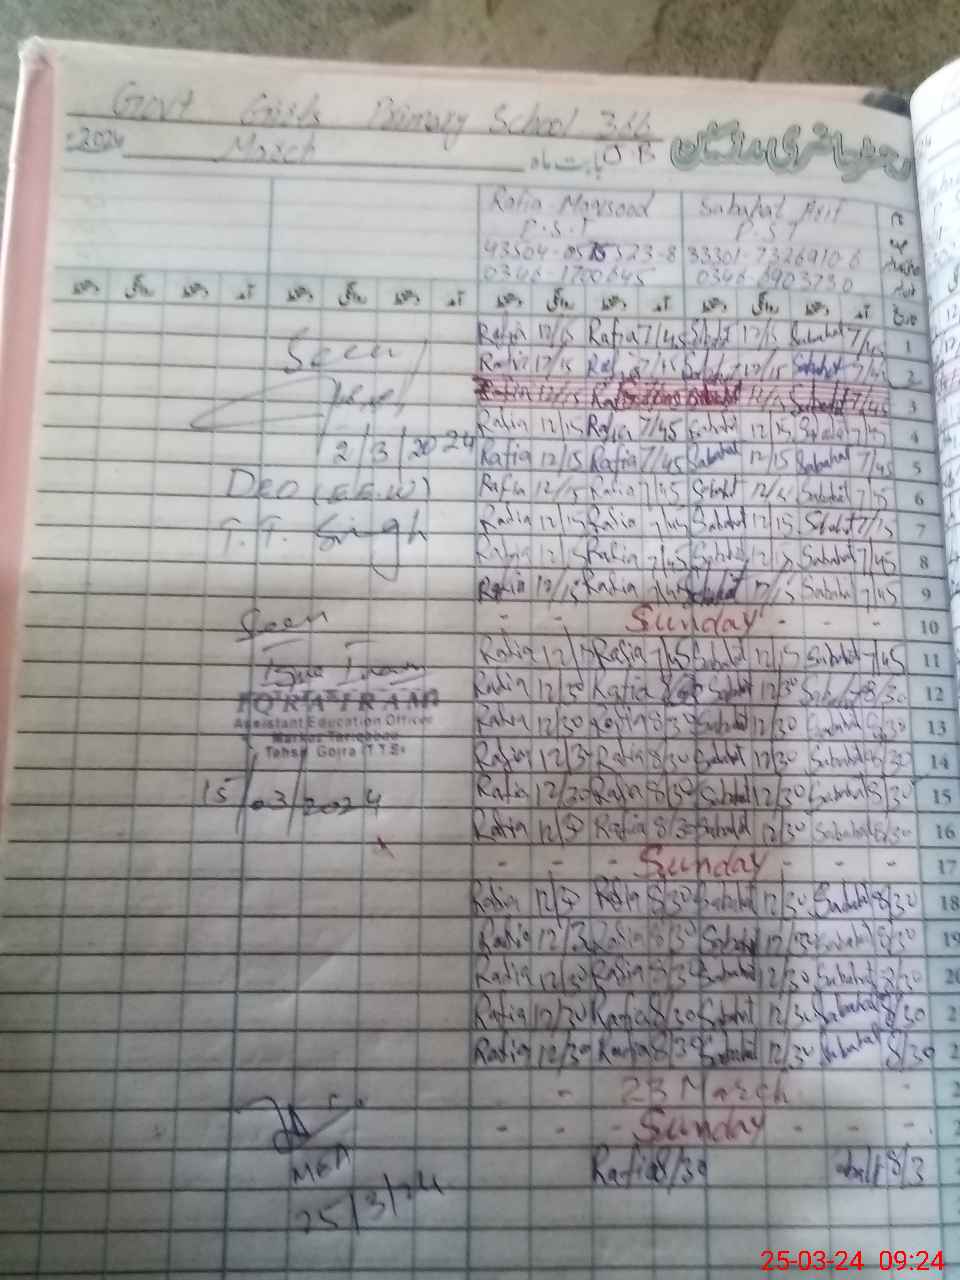 Govt Girls Primary School 326
2024 March بابت ماہ J.B رجسٹر حاضری مدرسان
Rafia Maqsood Sabahat Arif
P.S.T P.S.T
33301-7326910-6
0346-1700645 0346-6903730
Rafia 12/15 Rafia 7/45 Sabahat 12/15 Sabahat 7/45 1
Rafia 12/15 Rafia 7/45 Sabahat 12/15 Sabahat 7/45 2
Seen
Rafia 12/15 Sabahat 7/45 3
Rafia 12/15 Rafia 7/45 Sabahat 12/15 Sabahat 7/45 4
2/3/2024 Rafia 12/15 Rafia 7/45 Sabahat 12/15 Sabahat 7/45 5
DEO (E.E.W) Rafia 12/15 Rafia 7/45 Sabahat 12/15 Sabahat 7/45 6
T.T. Singh Rafia 12/15 Rafia 7/45 Sabahat 12/15 Sabahat 7/45 7
Rafia 12/15 Rafia 7/45 Sabahat 12/15 Sabahat 7/45 8
Rafia 12/15 Rafia 7/45 Sabahat 12/15 Sabahat 7/45 9
Seen - - Sunday - - - 10
Rafia 12/15 Rafia 7/45 Sabahat 12/15 Sabahat 7/45 11
IQRA IRAM Rafia 12/30 Rafia 8/30 Sabahat 12/30 Sabahat 8/30 12
Assistant Education Officer Rafia 12/30 Rafia 8/30 Sabahat 12/30 Sabahat 8/30 13
Markaz
Tehsil Gojra (T.T.S) Rafia 12/30 Rafia 8/30 Sabahat 12/30 Sabahat 8/30 14
15/03/2024 Rafia 12/30 Rafia 8/30 Sabahat 12/30 Sabahat 8/30 15
Rafia 12/30 Rafia 8/30 Sabahat 12/30 Sabahat 8/30 16
- - - Sunday - - - 17
Rafia 12/30 Rafia 8/30 Sabahat 12/30 Sabahat 8/30 18
Rafia 12/30 Rafia 8/30 Sabahat 12/30 Sabahat 8/30 19
Rafia 12/30 Rafia 8/30 Sabahat 12/30 Sabahat 8/30 20
Rafia 12/30 Rafia 8/30 Sabahat 12/30 Sabahat 8/30 2
Rafia 12/30 Rafia 8/30 Sabahat 12/30 Sabahat 8/30 2
- 23 March -
- - - Sunday - - -
MEA Rafia 8/30 8/3
25/3/24
25-03-24 09:24